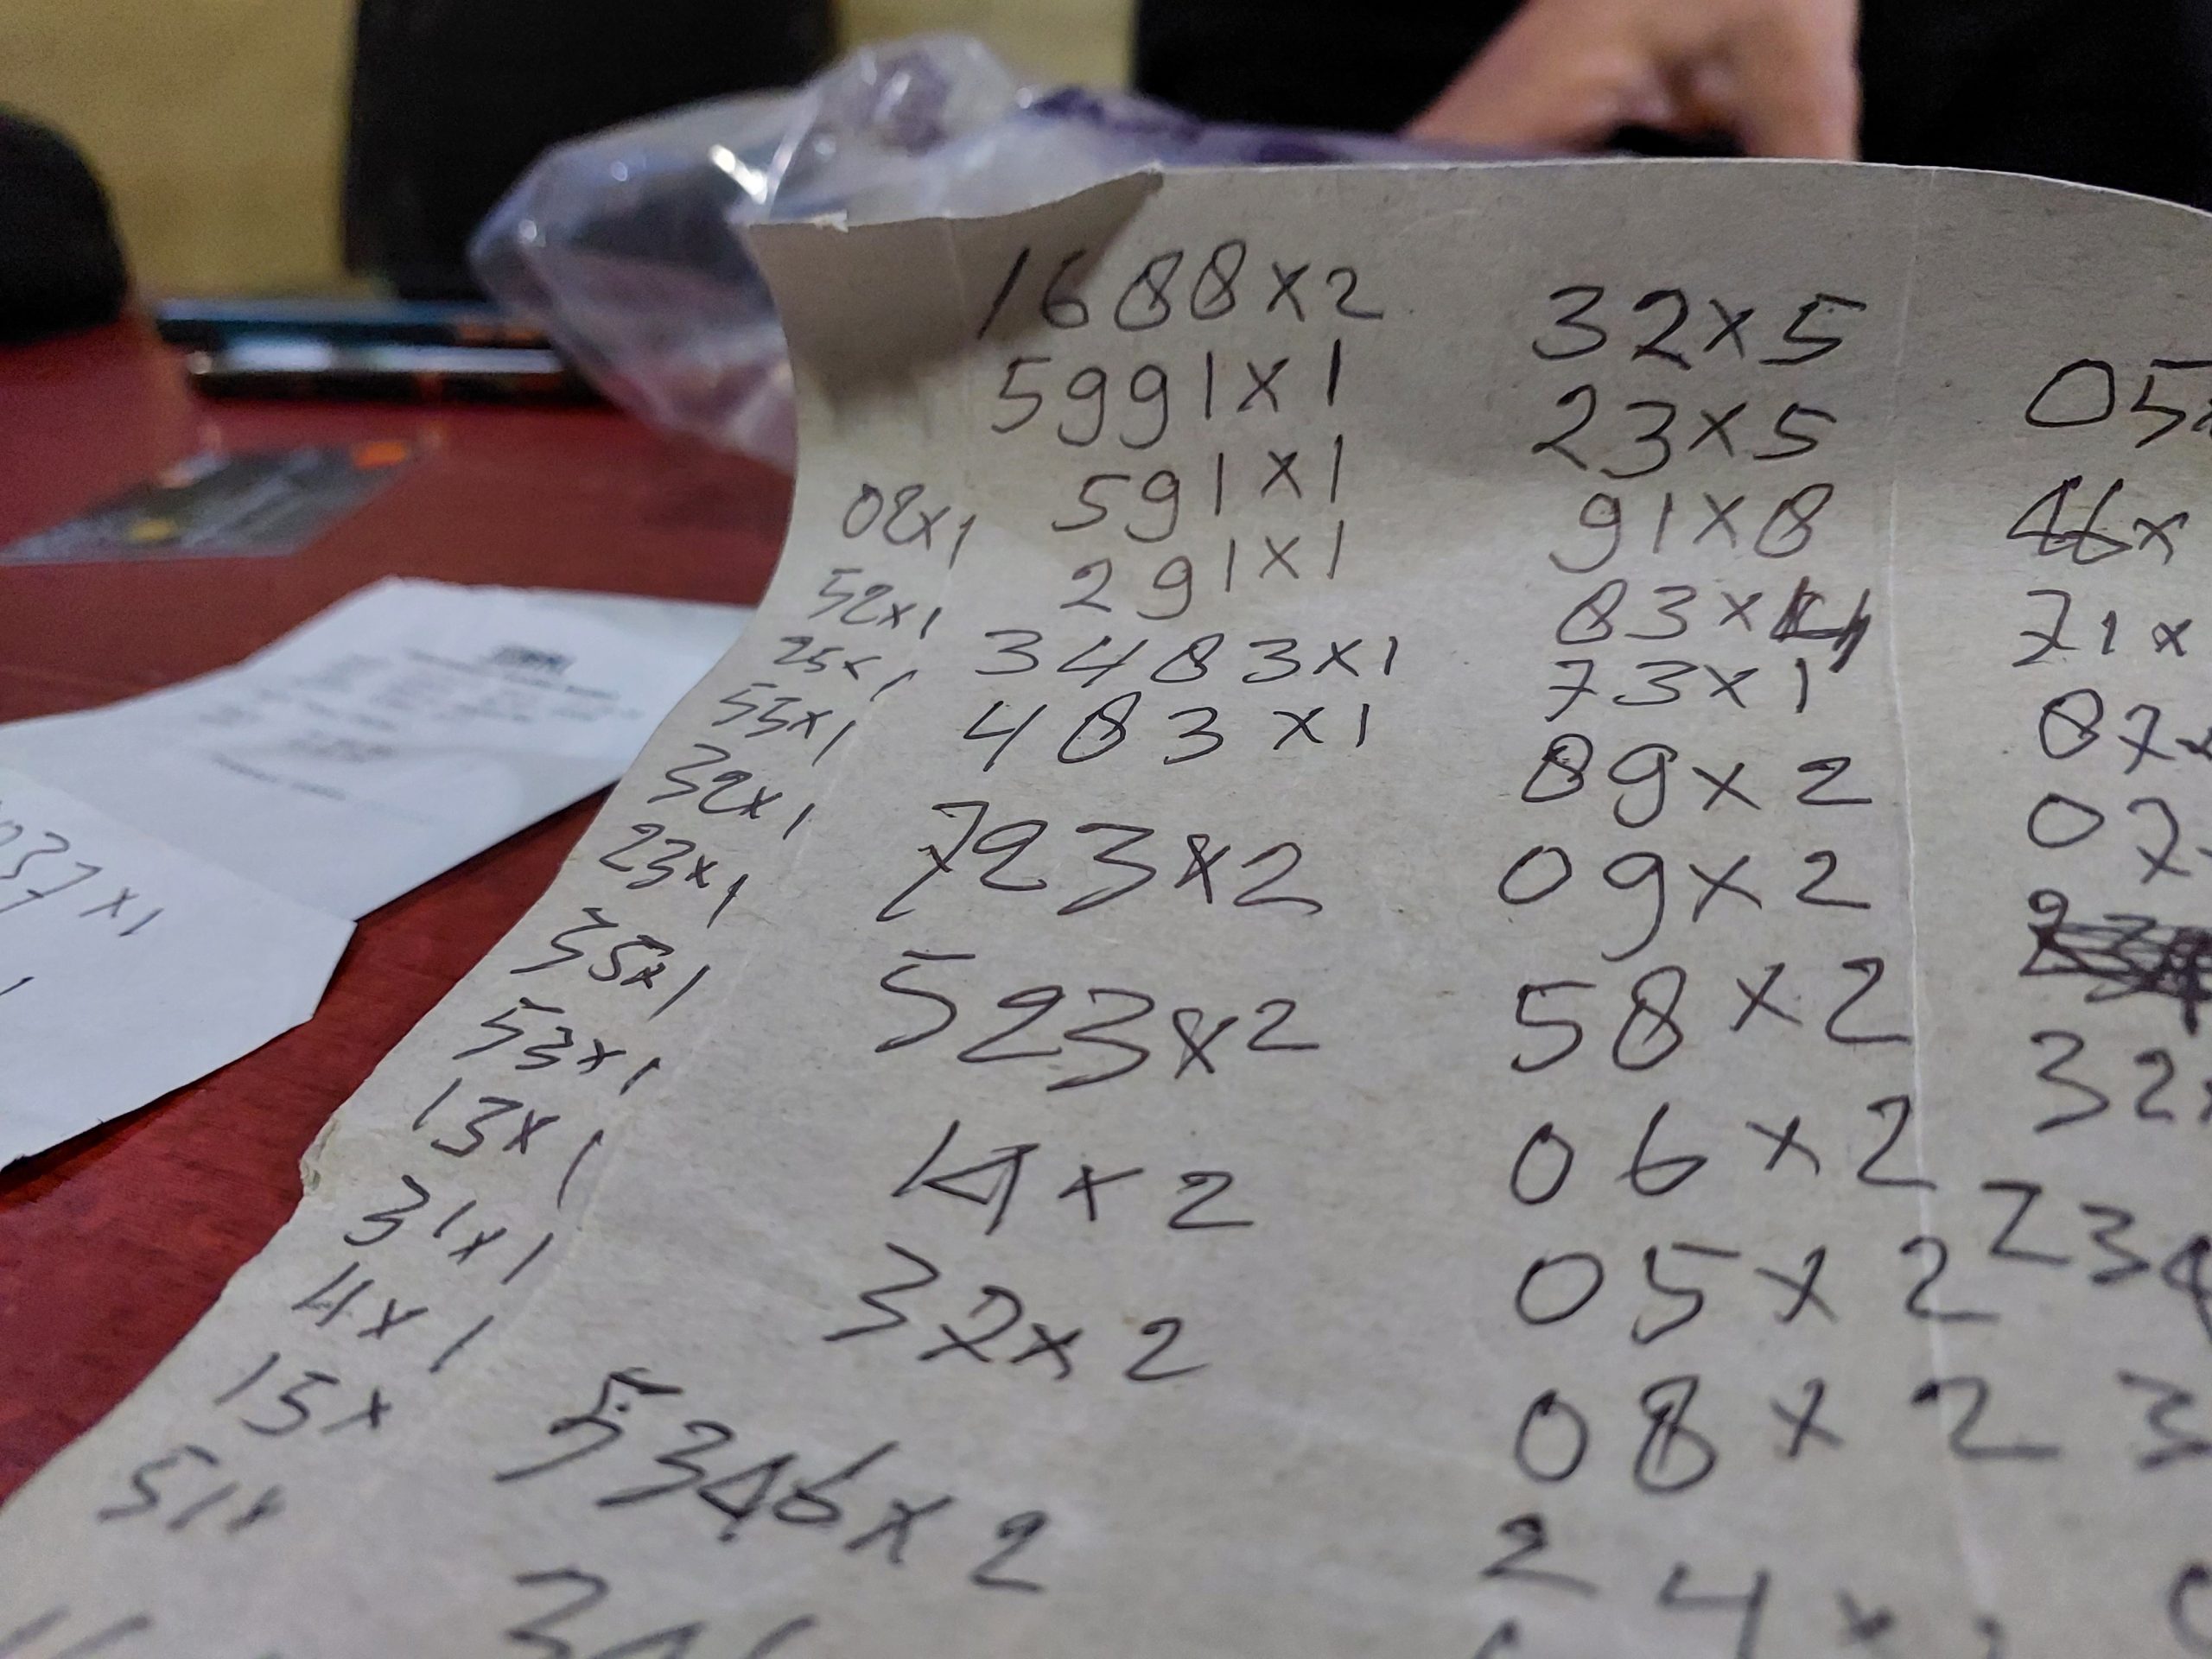 1688x2
5991x1
591x1
291x1
3483x1
483x1
723x2
523x2
14x2
32x2
5346x2
08x1
52x1
25x1
53x1
32x1
23x1
35x1
53x1
13x1
31x1
4x1
15x
51x
32x5
23x5
91x8
83x4
73x1
89x2
09x2
58x2
06x2
05x2
08x2
24x
05
46x
71x
87
07
32
234
3
037x1